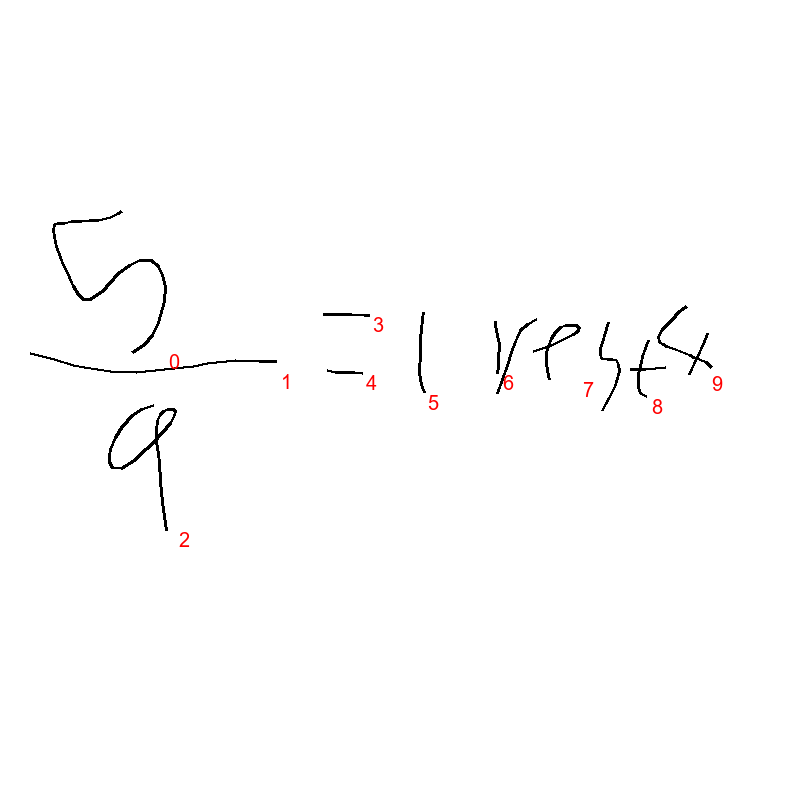 5
9
= 1 rest 4
0
1
2
3
4
5
6
7
8
9